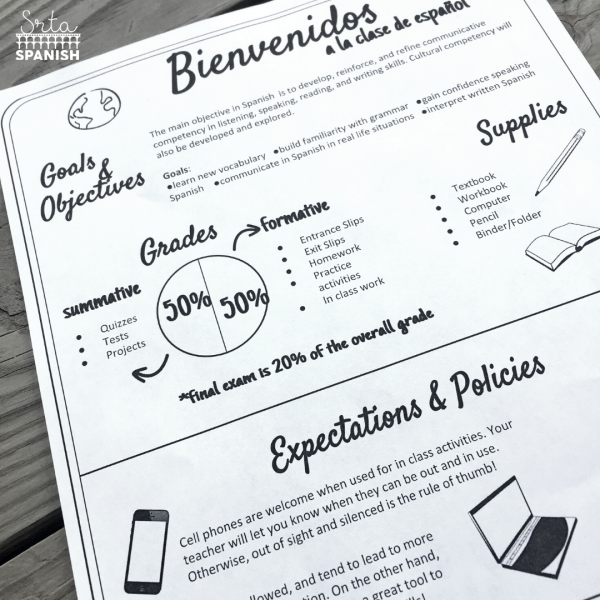 Srta
SPANISH
Bienvenidos
a la clase de español
The main objective in Spanish is to develop, reinforce, and refine communicative
competency in listening, speaking, reading, and writing skills. Cultural competency will
also be developed and explored.
Goals & Objectives
Goals:
•learn new vocabulary •build familiarity with grammar •gain confidence speaking
Spanish •communicate in Spanish in real life situations •interpret written Spanish
Grades
summative
• Quizzes
• Tests
• Projects
50% 50%
formative
• Entrance Slips
• Exit Slips
• Homework
• Practice
activities
• In class work
Supplies
• Textbook
• Workbook
• Computer
• Pencil
• Binder/Folder
**final exam is 20% of the overall grade
Expectations & Policies
Cell phones are welcome when used for in class activities. Your
teacher will let you know when they can be out and in use.
Otherwise, out of sight and silenced is the rule of thumb!
and tend to lead to more
On the other hand,
great tool to